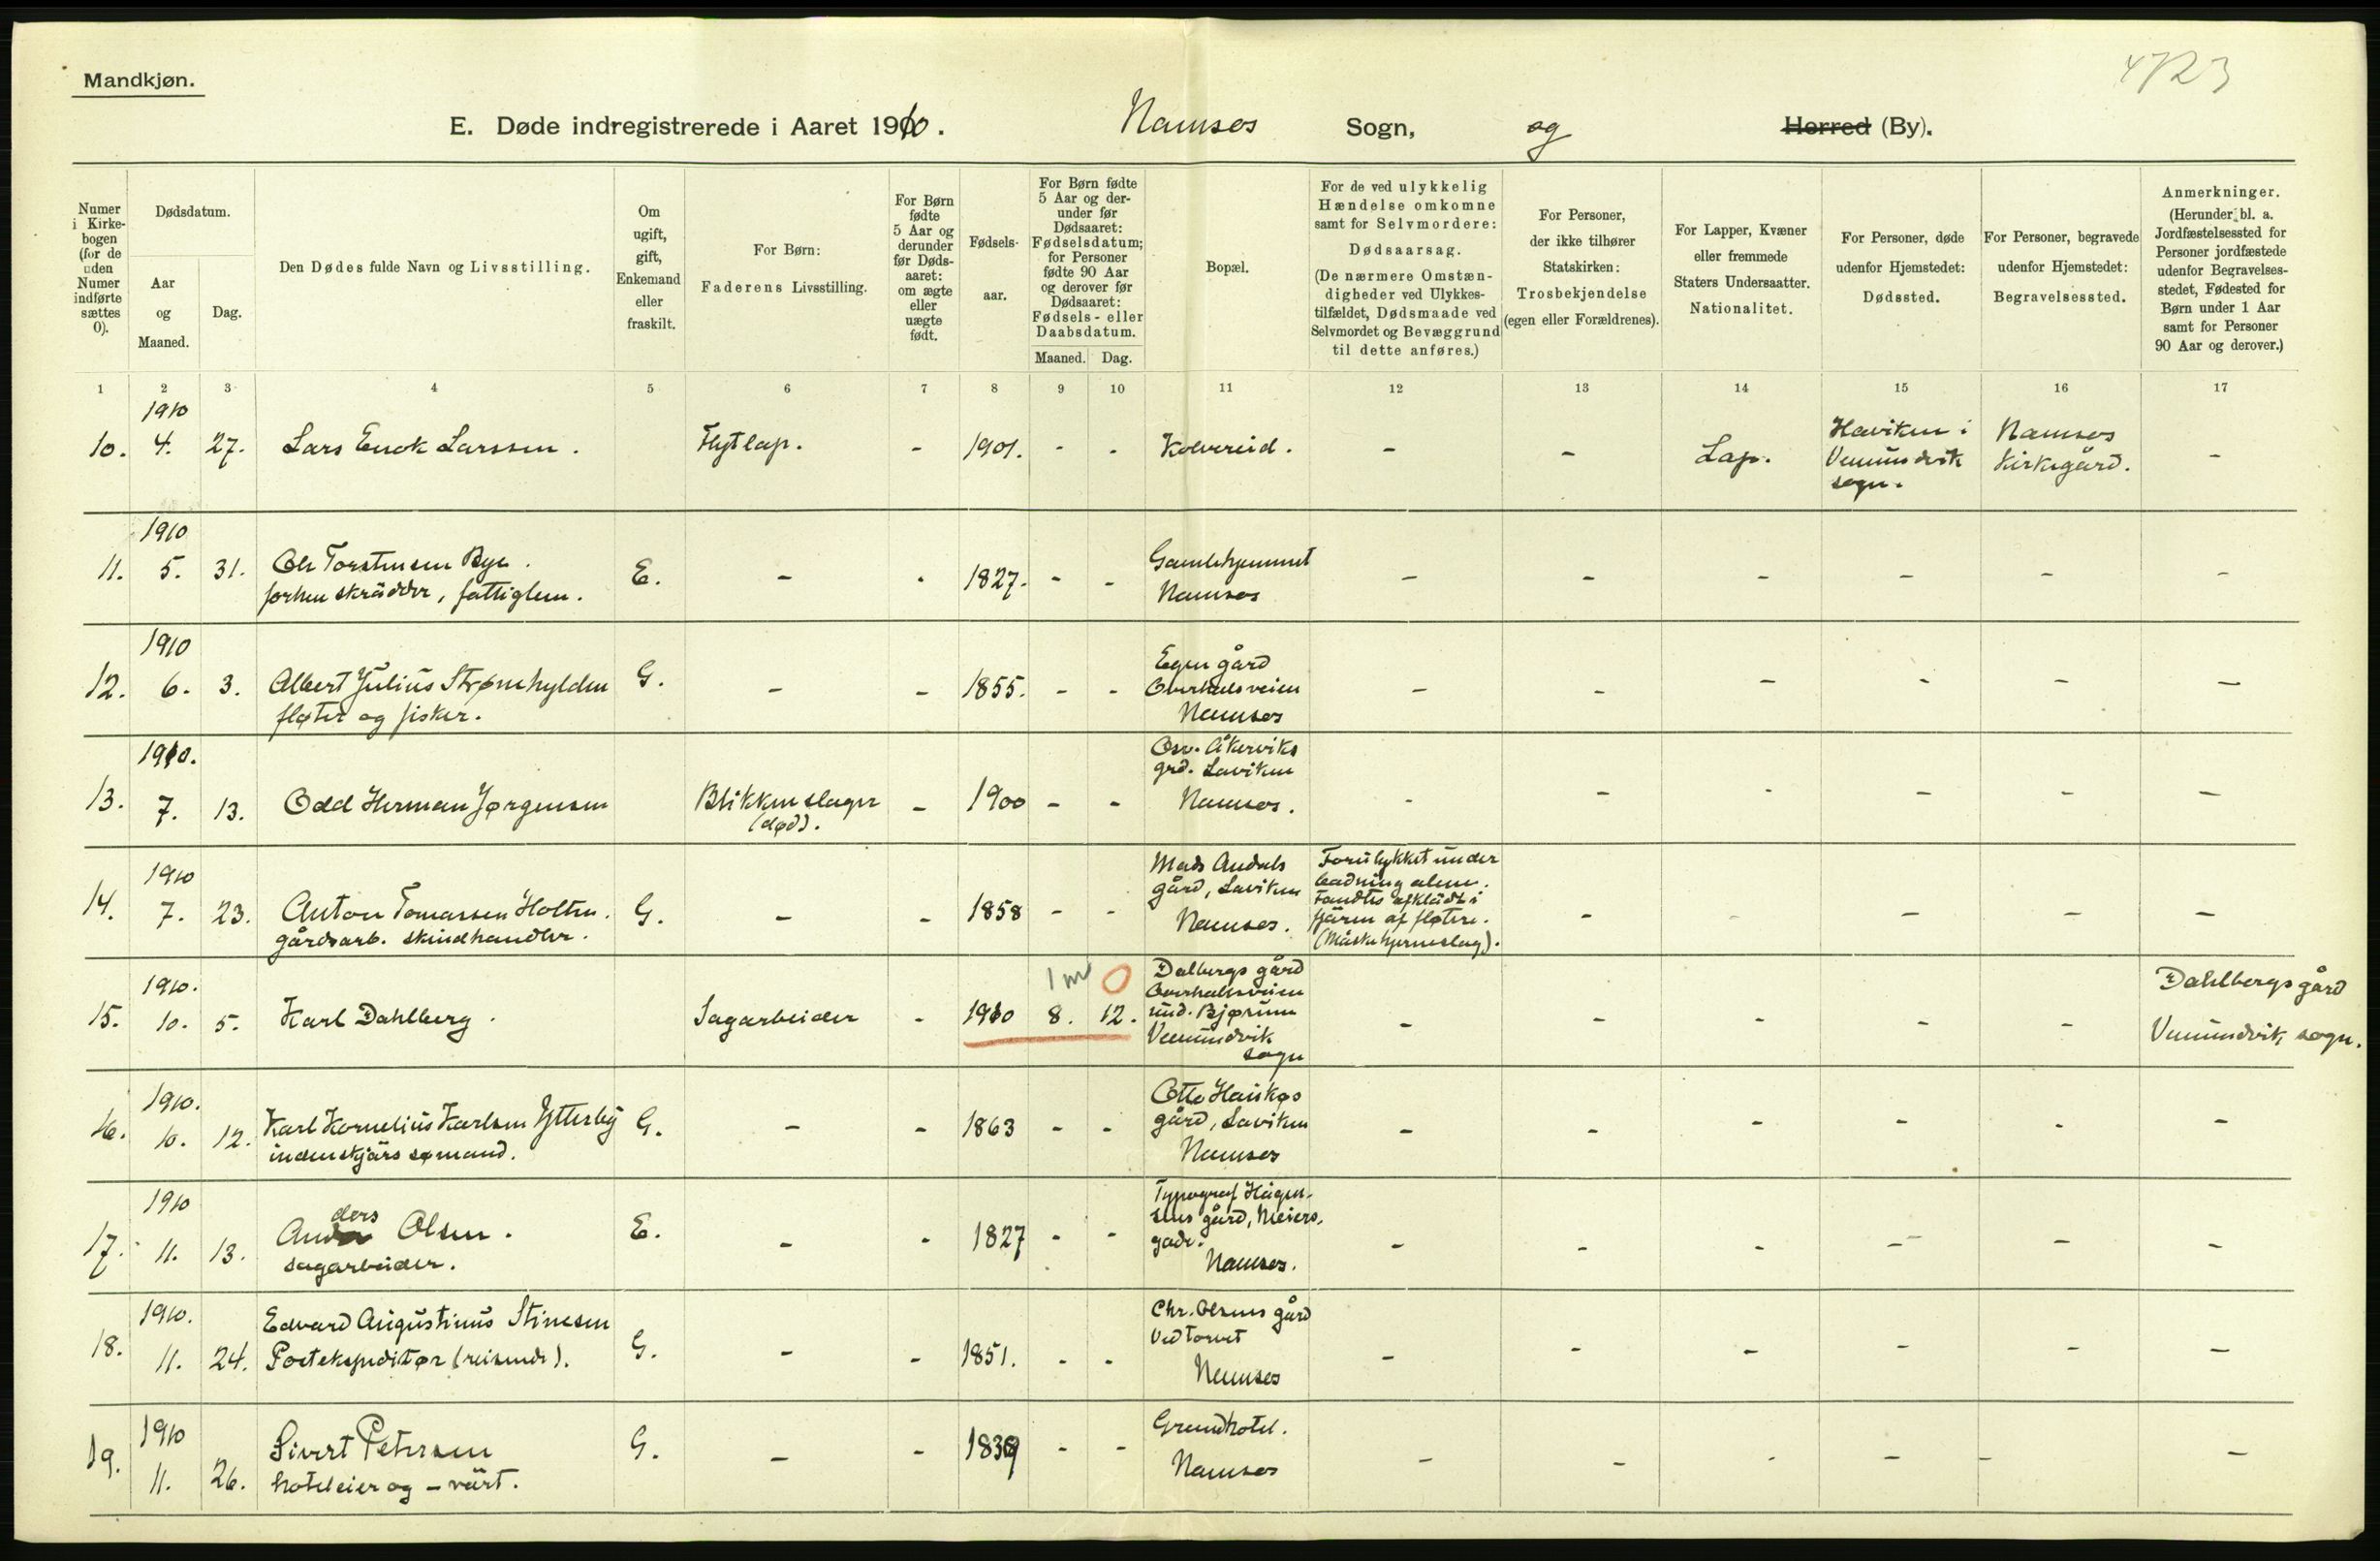 Mandkjøn.
4723
E. Døde indregistrerede i Aaret 1910. Namsos Sogn, og Herred (By).
Numer i Kirkebogen (for de uden Numer indførte sættes 0).
Dødsdatum.
Aar og Maaned.
Dag.
Den Dødes fulde Navn og Livsstilling.
Om ugift, gift, Enkemand eller fraskilt.
For Børn: Faderens Livsstilling.
For Børn fødte 5 Aar og derunder før Dødsaaret: om ægte eller uægte født.
Fødselsaar.
For Børn fødte 5 Aar og derunder før Dødsaaret: Fødselsdatum; for Personer fødte 90 Aar og derover før Dødsaaret: Fødsels- eller Daabsdatum.
Maaned. Dag.
Bopæl.
For de ved ulykkelig Hændelse omkomne samt for Selvmordere: Dødsaarsag. (De nærmere Omstændigheder ved Ulykkestilfældet, Dødsmaade ved Selvmordet og Bevæggrund til dette anføres.)
For Personer, der ikke tilhører Statskirken: Trosbekjendelse (egen eller Forældrenes).
For Lapper, Kvæner eller fremmede Staters Undersaatter. Nationalitet.
For Personer, døde udenfor Hjemstedet: Dødssted.
For Personer, begravede udenfor Hjemstedet: Begravelsessted.
Anmerkninger. (Herunder bl. a. Jordfæstelsessted for Personer jordfæstede udenfor Begravelsesstedet, Fødested for Børn under 1 Aar samt for Personer 90 Aar og derover.)
1 2 3 4 5 6 7 8 9 10 11 12 13 14 15 16 17
1910
10. 4. 27. Lars Enok Larssen. Flytlap. - 1901. - - Kolvereid. - - Lap. Haviken i Vemundvik sogn. Namsos Kirkegård. -
1910
11. 5. 31. Ole Torstensen Bye.
forhen skrädder, fattiglem. E. - - 1827. - - Gamlehjemmet
Namsos - - - - - -
1910
12. 6. 3. Albert Julius Strømhylden
fløter og fisker. G. - - 1855. - - Egen gård
Overhalsveien
Namsos - - - - - -
1910.
13. 7. 13. Odd Herman Jørgensen Blikkenslager
(død). - 1900 - - Osv. Åkerviks
grd. Laviken
Namsos. - - - - - -
1910
14. 7. 23. Anton Tomassen Holten.
gårdsarb. skindhandler. G. - - 1858 - - Mads Andals
gård, Laviken
Namsos. Forulykket under
badning alene.
Fandtes afklädt i
fjären af fløtere.
(Måske hjerneslag). - - - - -
1910.
15. 10. 5. Karl Dahlberg. Sagarbeider - 1910 8. 12. 1 m 0 Dalbergs gård
Overhalsveien
und. Bjørum
Vemundvik
sogn - - - - - Dahlbergs gård
Vemundvik sogn.
1910.
16. 10. 12. Karl Kornelius Karlsen Ytterby
indenskjärs sømand. G. - - 1863 - - Otto Haukøs
gård, Laviken
Namsos - - - - - -
1910
17. 11. 13. Anders Olsen.
sagarbeider. E. - - 1827 - - Typograf Hågen-
sens gård, Meiers.
gade.
Namsos. - - - - - -
1910.
18. 11. 24. Edvard Augustinus Stinesen
Postekspeditør (reisende). G. - - 1851. - - Chr. Olsens gård
Ved torvet
Namsos - - - - - -
1910
19. 11. 26. Sivert Petersen
hoteleier og - värt. G. - - 1839 - - Grand hotel.
Namsos - - - - - -